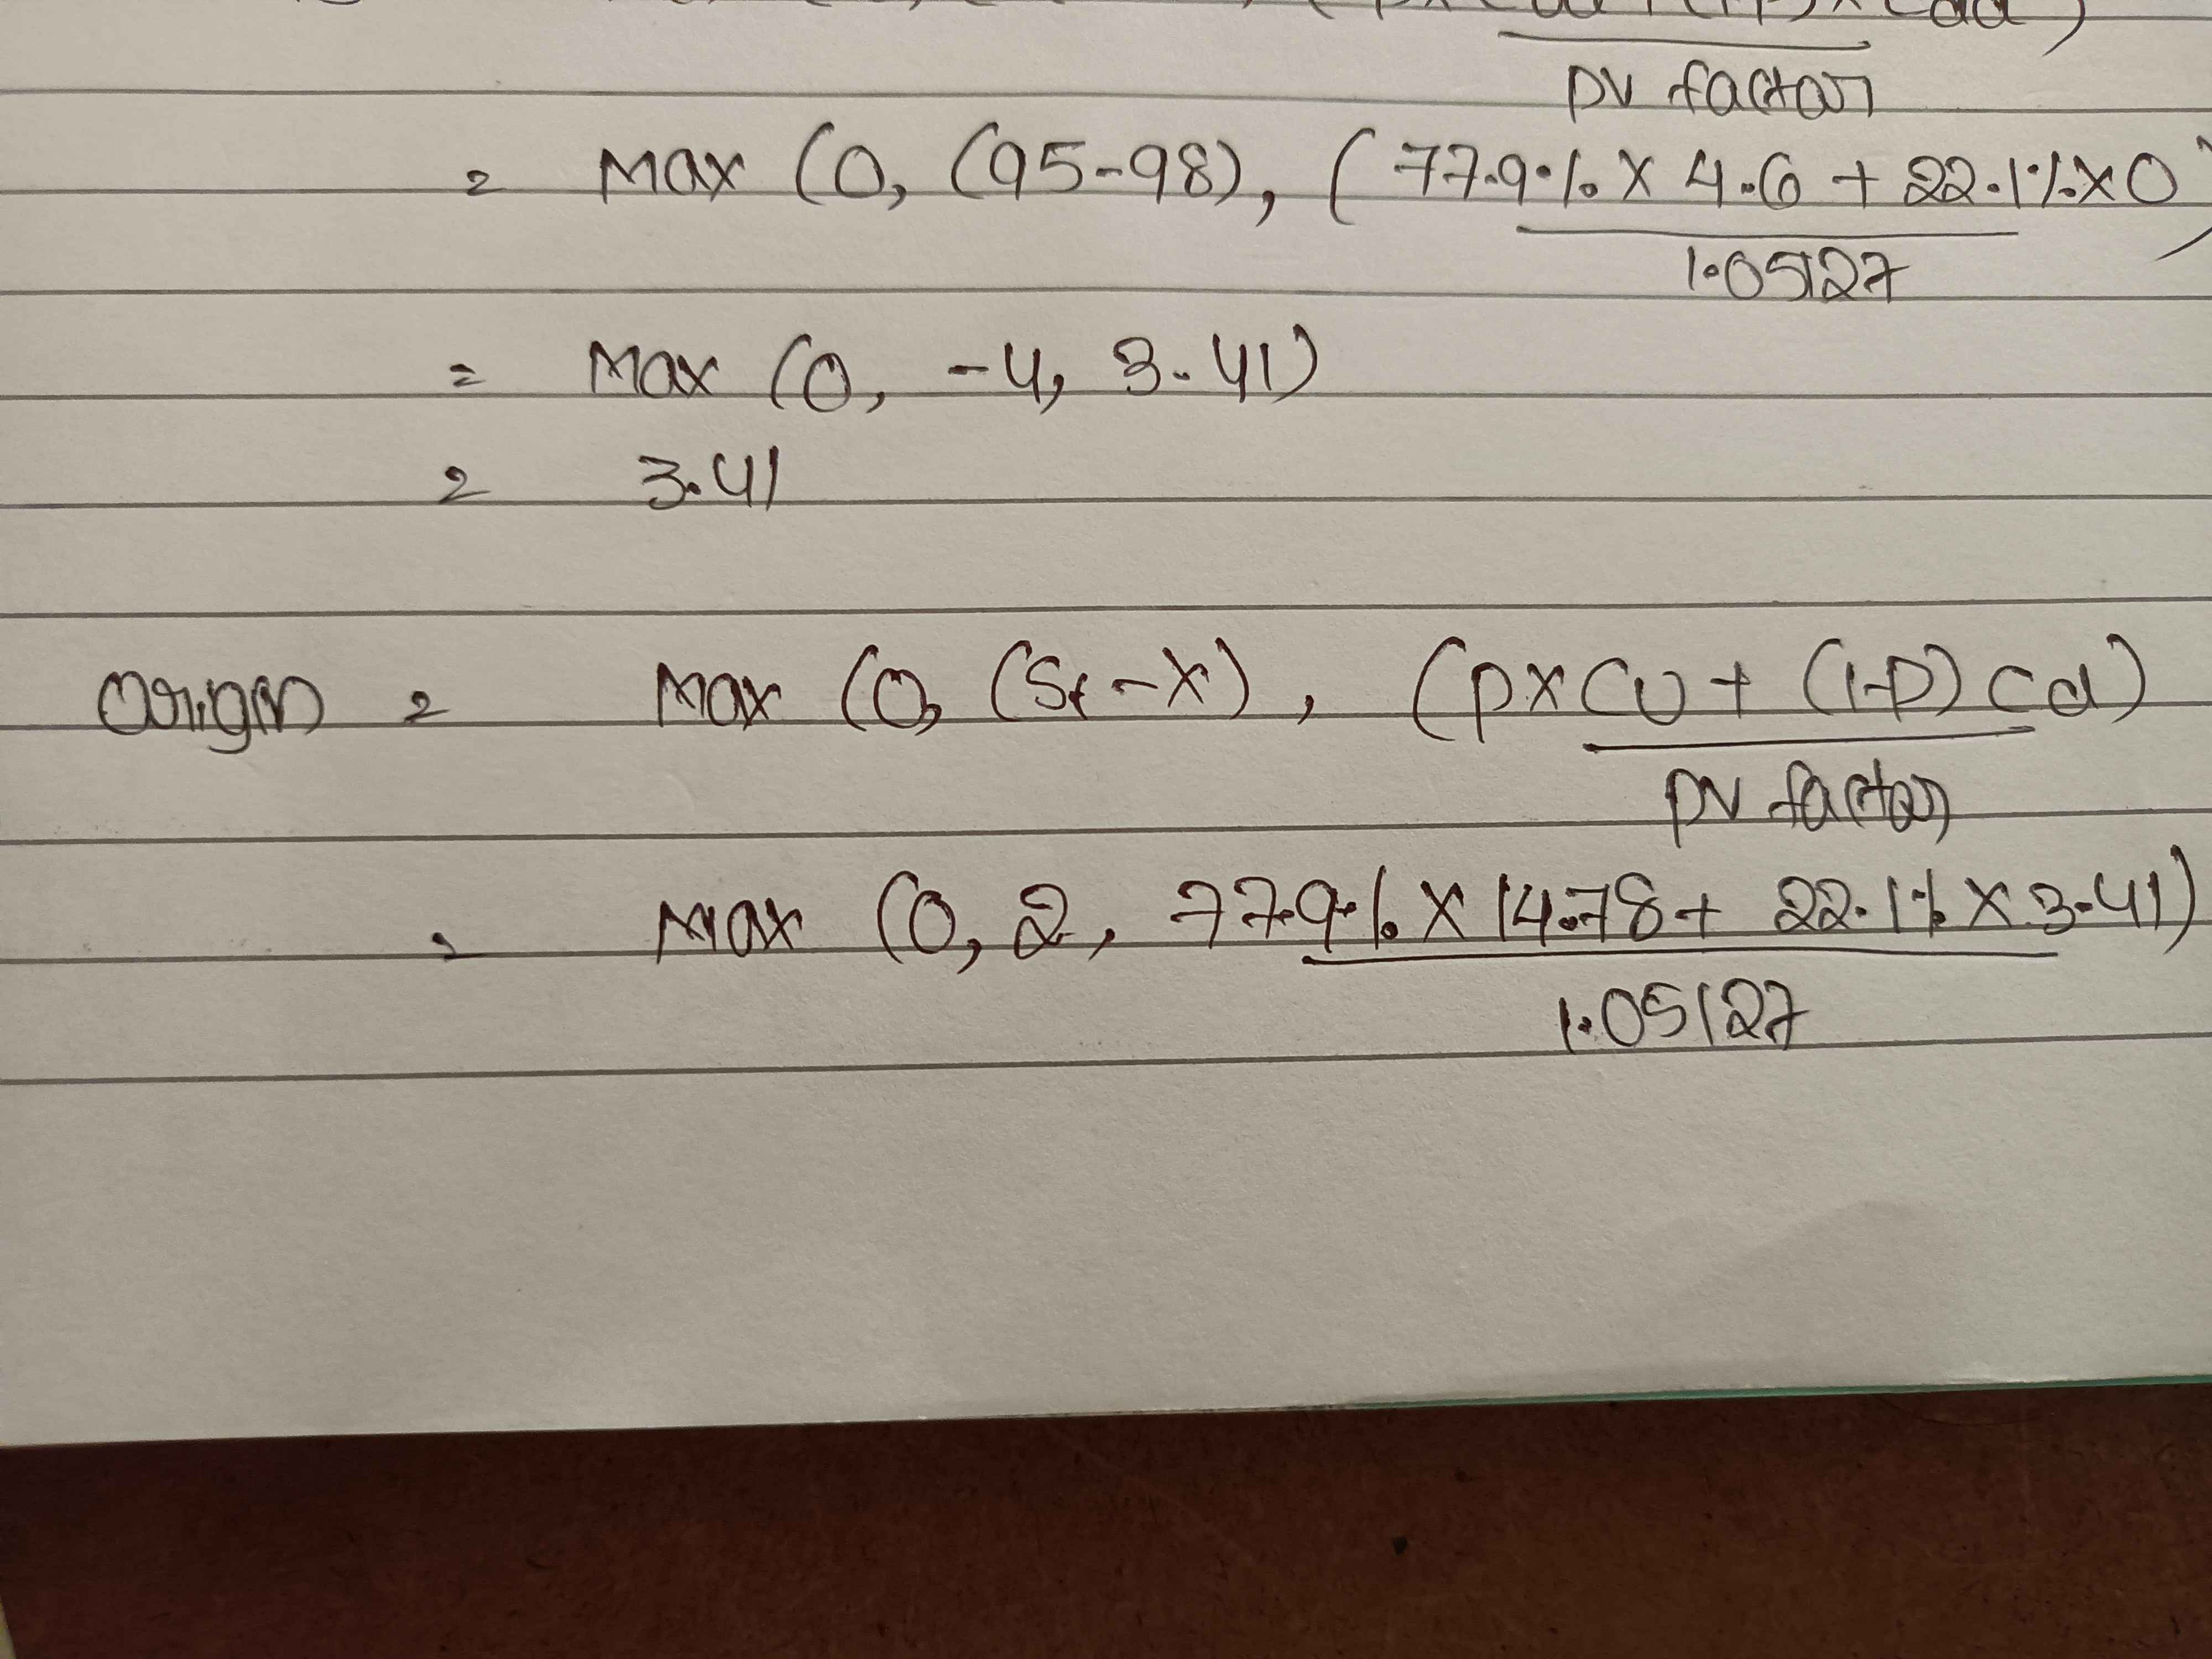 (p x Cdu + (1-p) x Cdd)
PV factor
= Max (0, (95-98), (77.9% x 4.6 + 22.1% x 0)
1.05127
= Max (0, -4, 3.41)
= 3.41
Origin = Max (0, (St-X), (p x Cu + (1-p) Cd)
PV factor
= Max (0, 2, 77.9% x 14.78 + 22.1% x 3.41)
1.05127